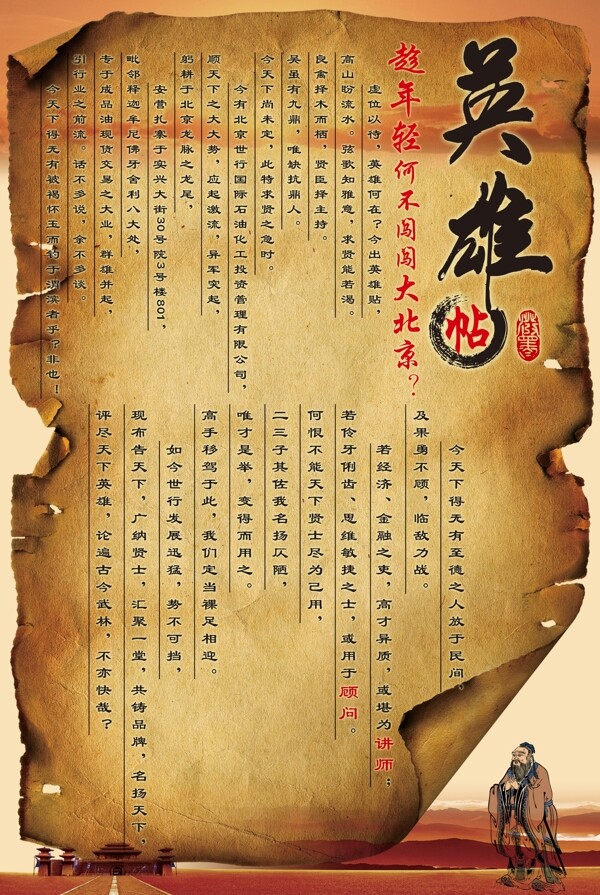 英雄帖
趁年轻何不闯闯大北京？
虚位以待，英雄何在？今出英雄贴，
高山盼流水。弦歌知雅意，求贤能若渴。
良禽择木而栖，贤臣择主持。
吴虽有九鼎，唯缺抗鼎人。
今天下尚未定，此特求贤之急时。
今有北京世行国际石油化工投资管理有限公司，
顺天下之大大势，应起激流，异军突起，
躬耕于北京龙脉之龙尾，
安营扎寨于实兴大街30号院3号楼801，
毗邻释迦牟尼佛牙舍利八大处，
专于成品油现货交易之大业，群雄并起，
引行业之前流。话不多说，余不多谈。
今天下得无有被褐怀玉而钓于渭滨者乎？非也！
今天下得无有至德之人放于民间。
及果勇不顾，临敌力战。
若经济、金融之吏，高才异质，或堪为讲师；
若伶牙俐齿、思维敏捷之士，或用于顾问。
何恨不能天下贤士尽为己用，
二三子其佐我名扬仄陋，
唯才是举，变得而用之。
高手移驾于此，我们定当裸足相迎。
如今世行发展迅猛，势不可挡，
现布告天下，广纳贤士，汇聚一堂，共铸品牌，名扬天下，
评尽天下英雄，论遍古今武林，不亦快哉？